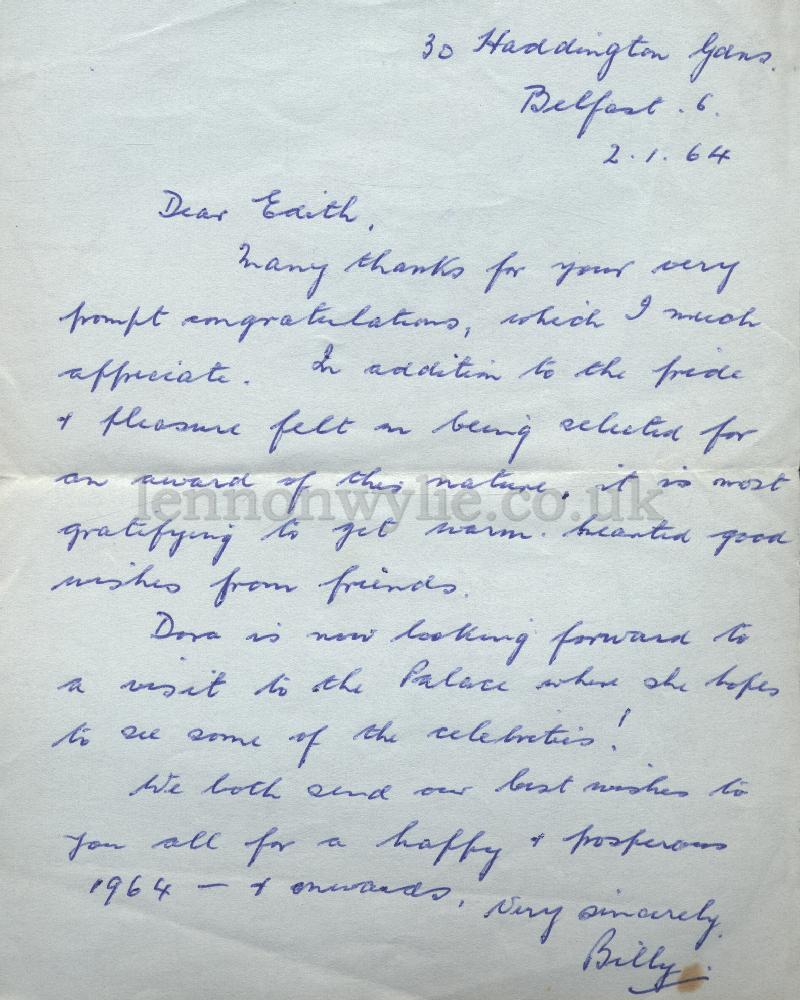 30 Haddington Gdns.
Belfast. 6.
2.1.64
Dear Edith,
Many thanks for your very
prompt congratulations, which I much
appreciate. In addition to the pride
& pleasure felt in being selected for
an award of this nature, it is most
lennonwylie.co.uk
gratifying to get warm-hearted good
wishes from friends.
Dora is now looking forward to
a visit to the Palace where she hopes
to see some of the celebrities!
We both send our best wishes to
you all for a happy & prosperous
1964 — & onwards.
Very sincerely,
Billy.